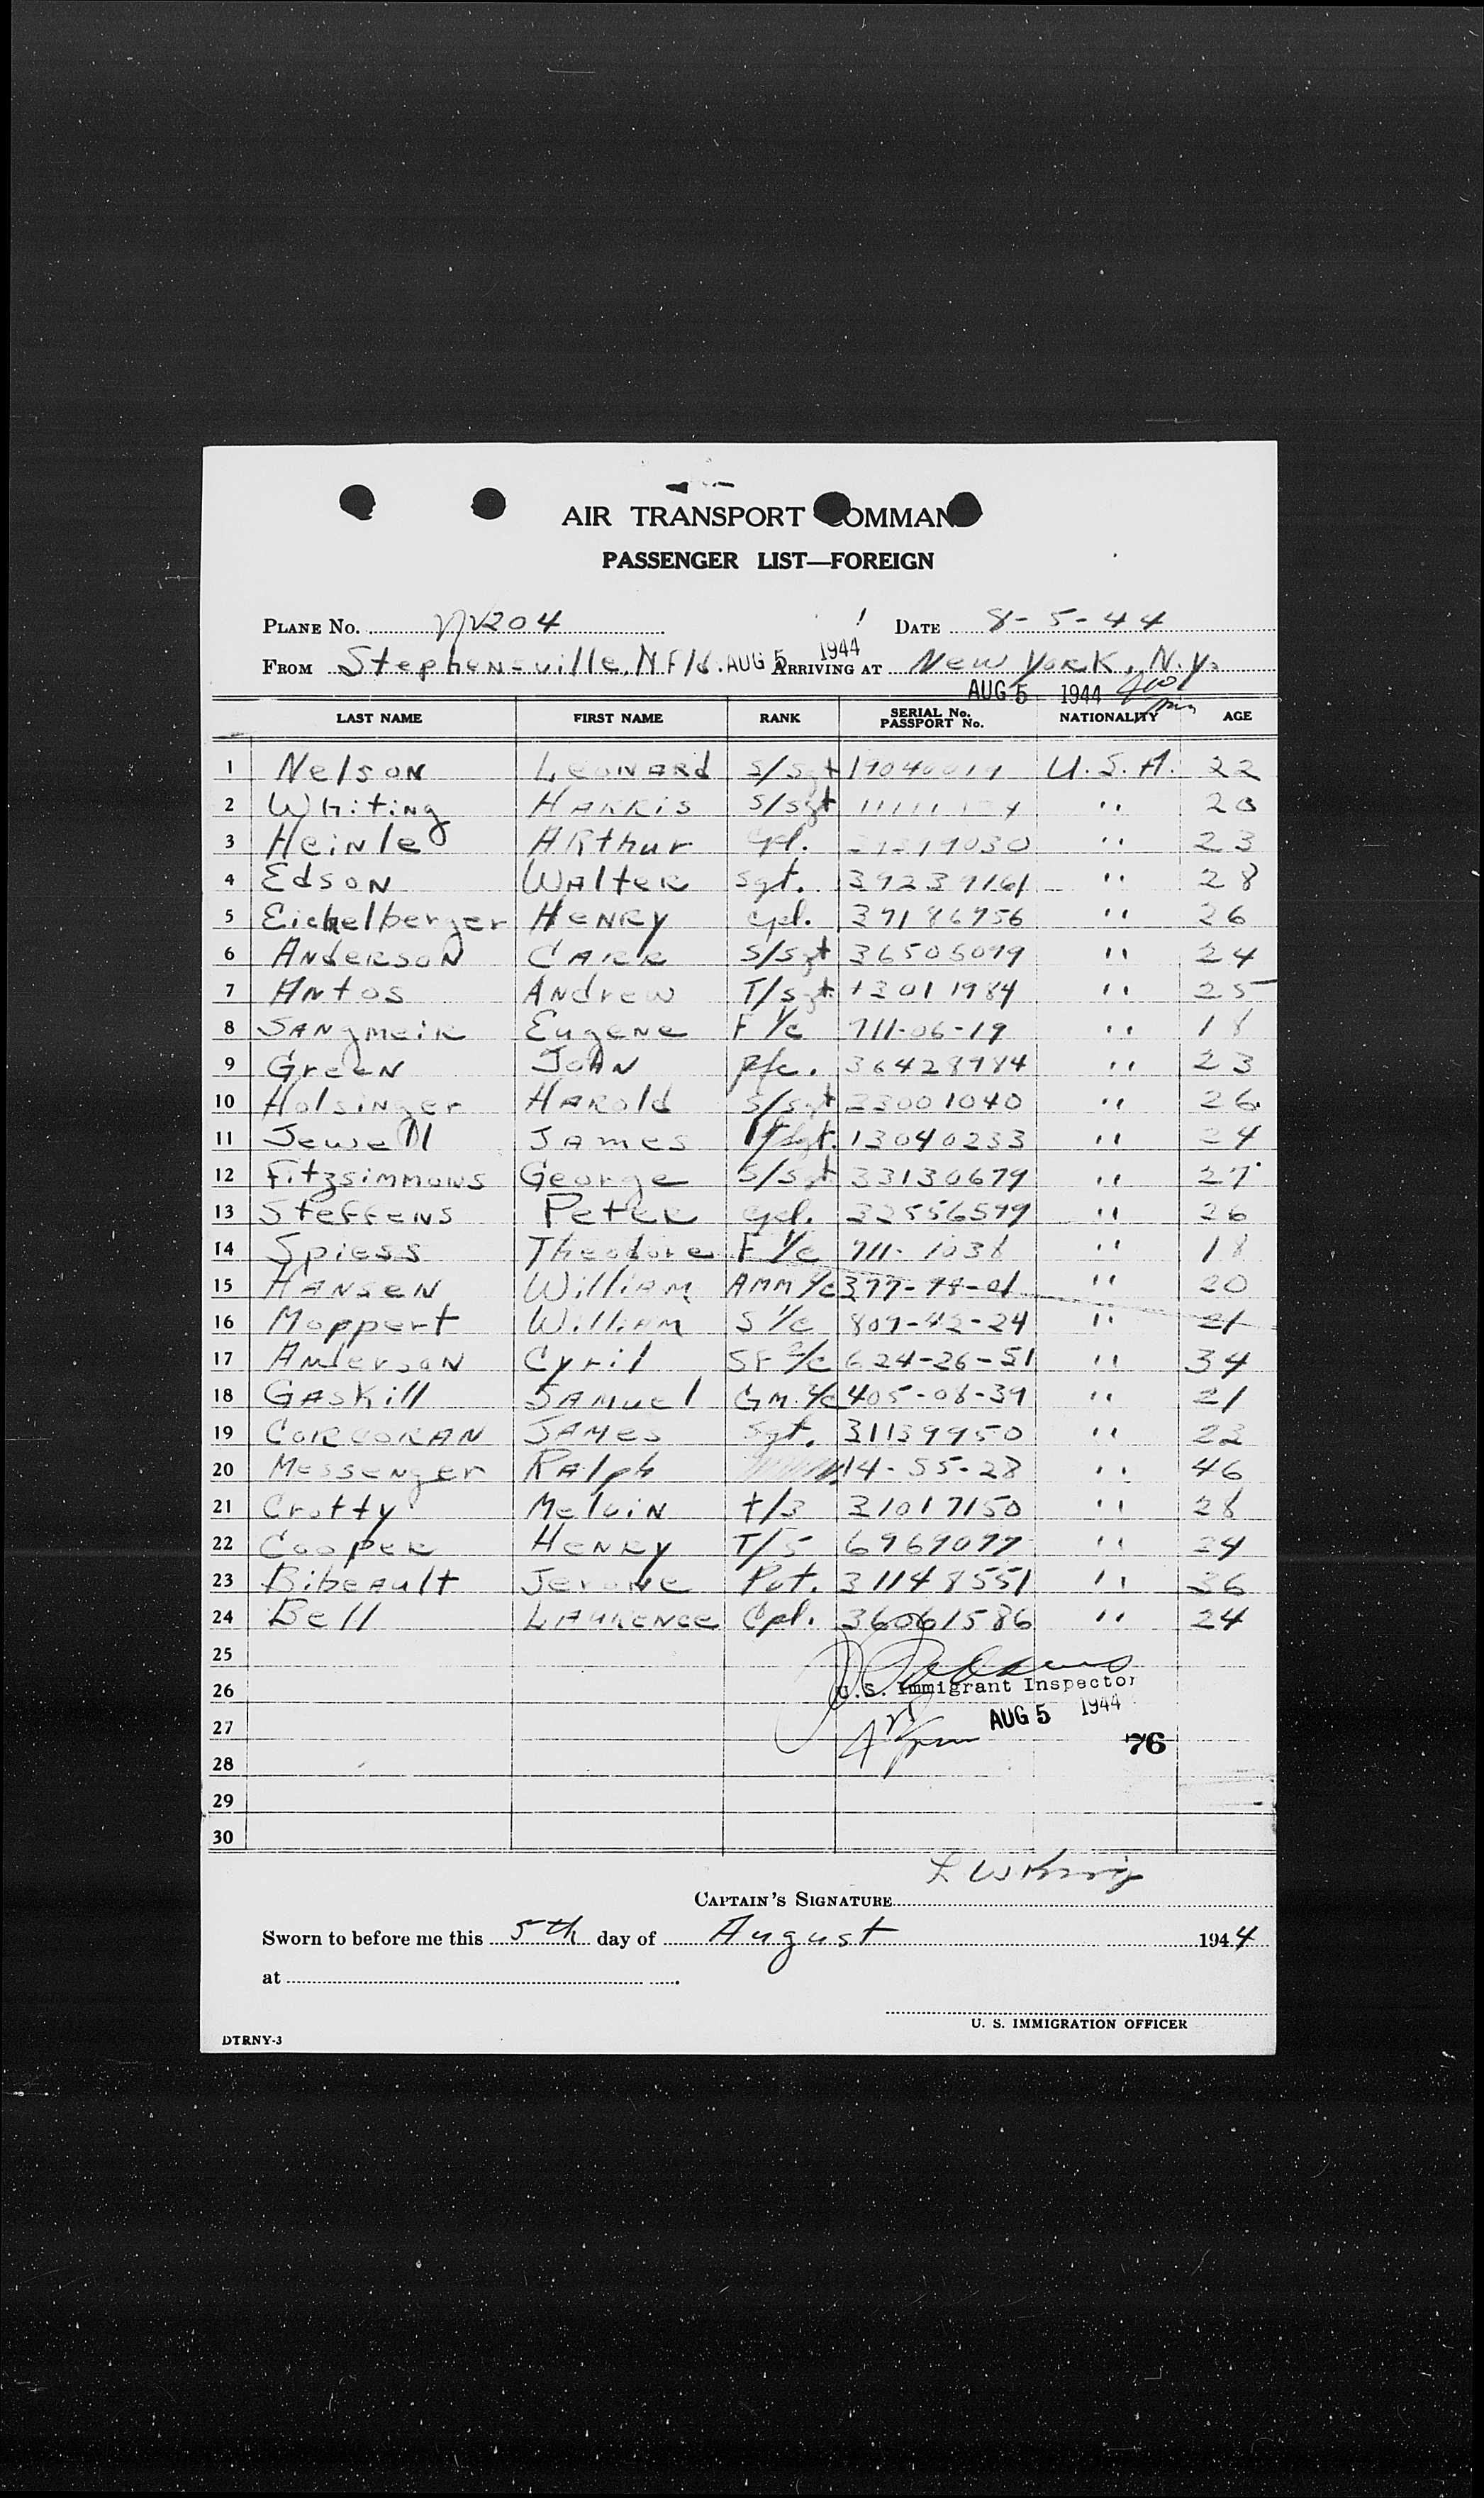 AIR TRANSPORT COMMAND
PASSENGER LIST—FOREIGN
PLANE No. 204 DATE 8-5-44
FROM Stephensville, Nfld. AUG 5 1944 ARRIVING AT New York, N.Y.
AUG 5 1944
LAST NAME FIRST NAME RANK SERIAL No. PASSPORT No. NATIONALITY AGE
1 Nelson Leonard S/Sgt 19040019 U.S.A. 22
2 Whiting Harris S/Sgt " 20
3 Heinle Arthur Cpl. " 23
4 Edson Walter Sgt. 39239161 " 28
5 Eichelberger Henry Cpl. 39186956 " 26
6 Anderson Carr S/Sgt 36505099 " 24
7 Antos Andrew T/Sgt 13011984 " 25
8 Sangmeir Eugene F 1/c 711-06-19 " 18
9 Green John Pfc. 36428984 " 23
10 Holsinger Harold S/Sgt 33001040 " 26
11 Jewell James 13040233 " 24
12 Fitzsimmons George S/Sgt 33130679 " 27
13 Steffens Peter Cpl. 32556599 " 26
14 Spiess Theodore F 1/c 711-1038 " 18
15 Hansen William AMM /c 377-99-01 " 20
16 Moppert William S 1/c 809-42-24 " 21
17 Anderson Cyril SF 2/c 624-26-51 " 34
18 Gaskill Samuel GM /c 405-08-39 " 21
19 Corcoran James Sgt. 31139950 " 22
20 Messenger Ralph 14-55-28 " 46
21 Crotty Melvin T/3 31017150 " 28
22 Cooper Henry T/5 6969099 " 24
23 Bibeault Jerome Pvt. 31148551 " 36
24 Bell Laurence Cpl. 36061586 " 24
25
26 U.S. Immigrant Inspector
27 AUG 5 1944
28 76
29
30
CAPTAIN'S SIGNATURE
Sworn to before me this 5th day of August 1944
at
U. S. IMMIGRATION OFFICER
DTRNY-3